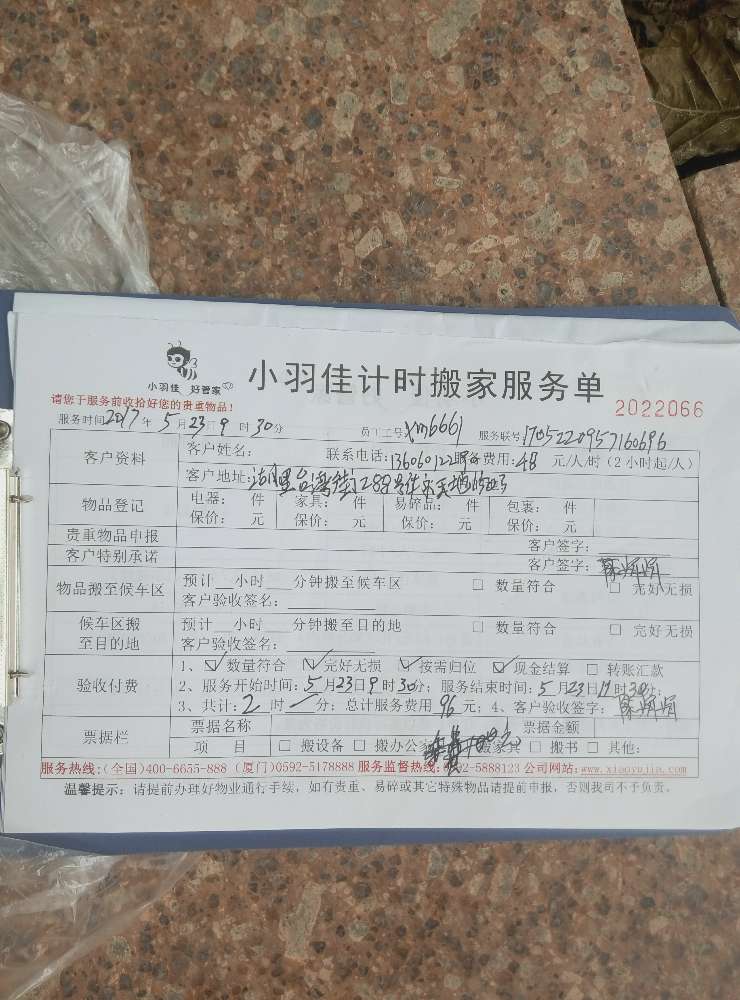 小羽佳 好管家
小羽佳计时搬家服务单
请您于服务前收拾好您的贵重物品！
2022066
服务时间2017年5月23日9时30分 员工工号xm6661 服务联号170522095716069
客户资料 客户姓名： 联系电话： 服务费用：48 元/人/时（2小时起/人）
客户地址：
物品登记 电器： 件 家具： 件 易碎品： 件 包裹： 件
保价： 元 保价： 元 保价： 元 保价： 元
贵重物品申报 客户签字：
客户特别承诺 客户签字：
物品搬至候车区 预计 小时 分钟搬至候车区 □ 数量符合 □ 完好无损
客户验收签名：
候车区搬至目的地 预计 小时 分钟搬至目的地 □ 数量符合 □ 完好无损
客户验收签名：
验收付费 1、☑数量符合 ☑完好无损 ☑按需归位 ☑现金结算 □ 转账汇款
2、服务开始时间：5月23日9时30分；服务结束时间：5月23日11时30分；
3、共计：2时一分；总计服务费用 96元；4、客户验收签字：
票据栏 票据名称 票据金额
项 目 □ 搬设备 □ 搬办公 搬家具 □ 搬书 □ 其他：
服务热线：（全国）400-6655-888（厦门）0592-5178888 服务监督热线：0592-5888123 公司网站：www.xiaoyujia.com
温馨提示：请提前办理好物业通行手续，如有贵重、易碎或其它特殊物品请提前申报，否则我司不予负责。